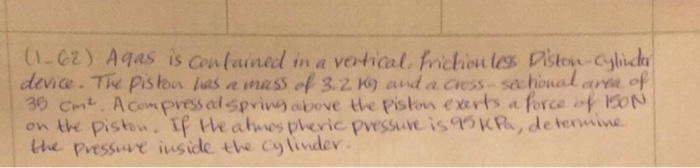 (1-62) A gas is contained in a vertical, frictionless Piston-Cylinder
device. The Piston has a mass of 3.2 kg and a cross-sectional area of
35 cm². A compressed spring above the Piston exerts a force of 150N
on the Piston. If the atmospheric pressure is 95 KPa, determine
the pressure inside the cylinder.